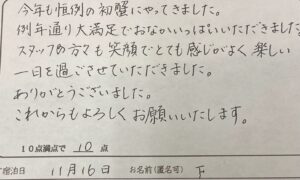 今年も恒例の初蟹にやってきました。
例年通り大満足でおなかいっぱいいただきました
スタッフの方々も笑顔でとても感じがよく楽しい
一日を過ごさせていただきました。
ありがとうございました。
これからもよろしくお願いいたします。
10点満点で 10 点
宿泊日 11月16日 お名前(匿名可) F